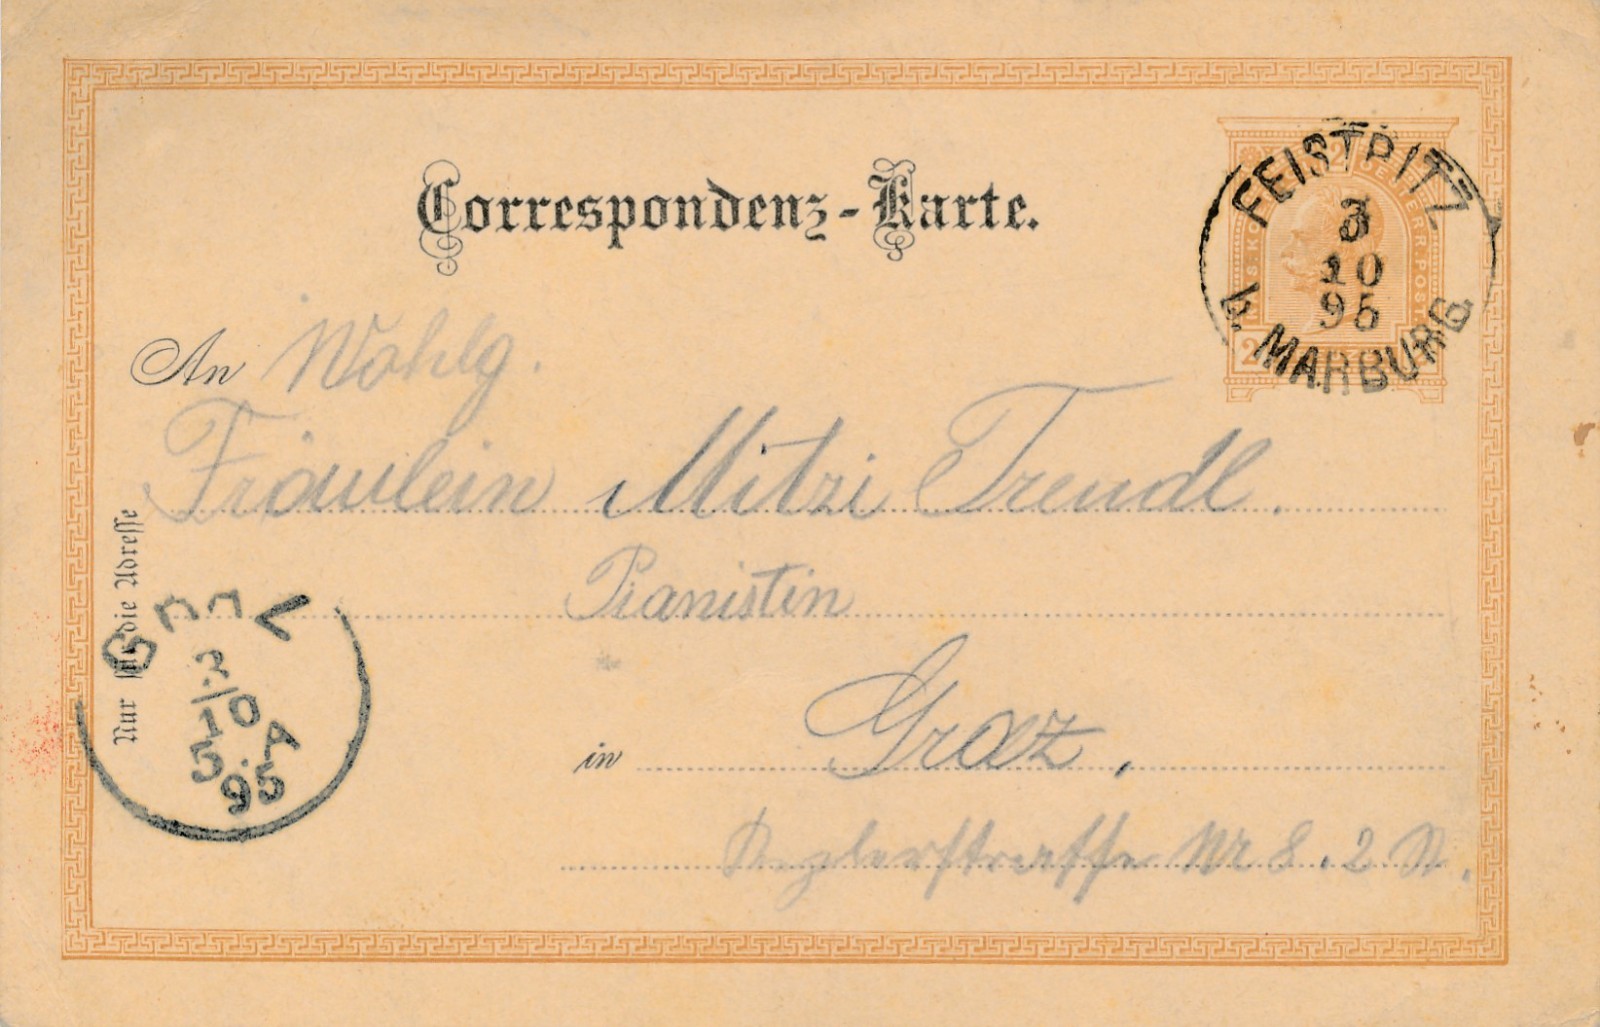 Correspondenz-Karte.
FEISTRITZ
3
10
95
b. MARBURG
2
An Wohlg.
Fräulein Mitzi Trendl.
Pianistin
in Graz,
Nr 8. 2
Nur für die Adresse
GRAZ
3/10
5.A
95